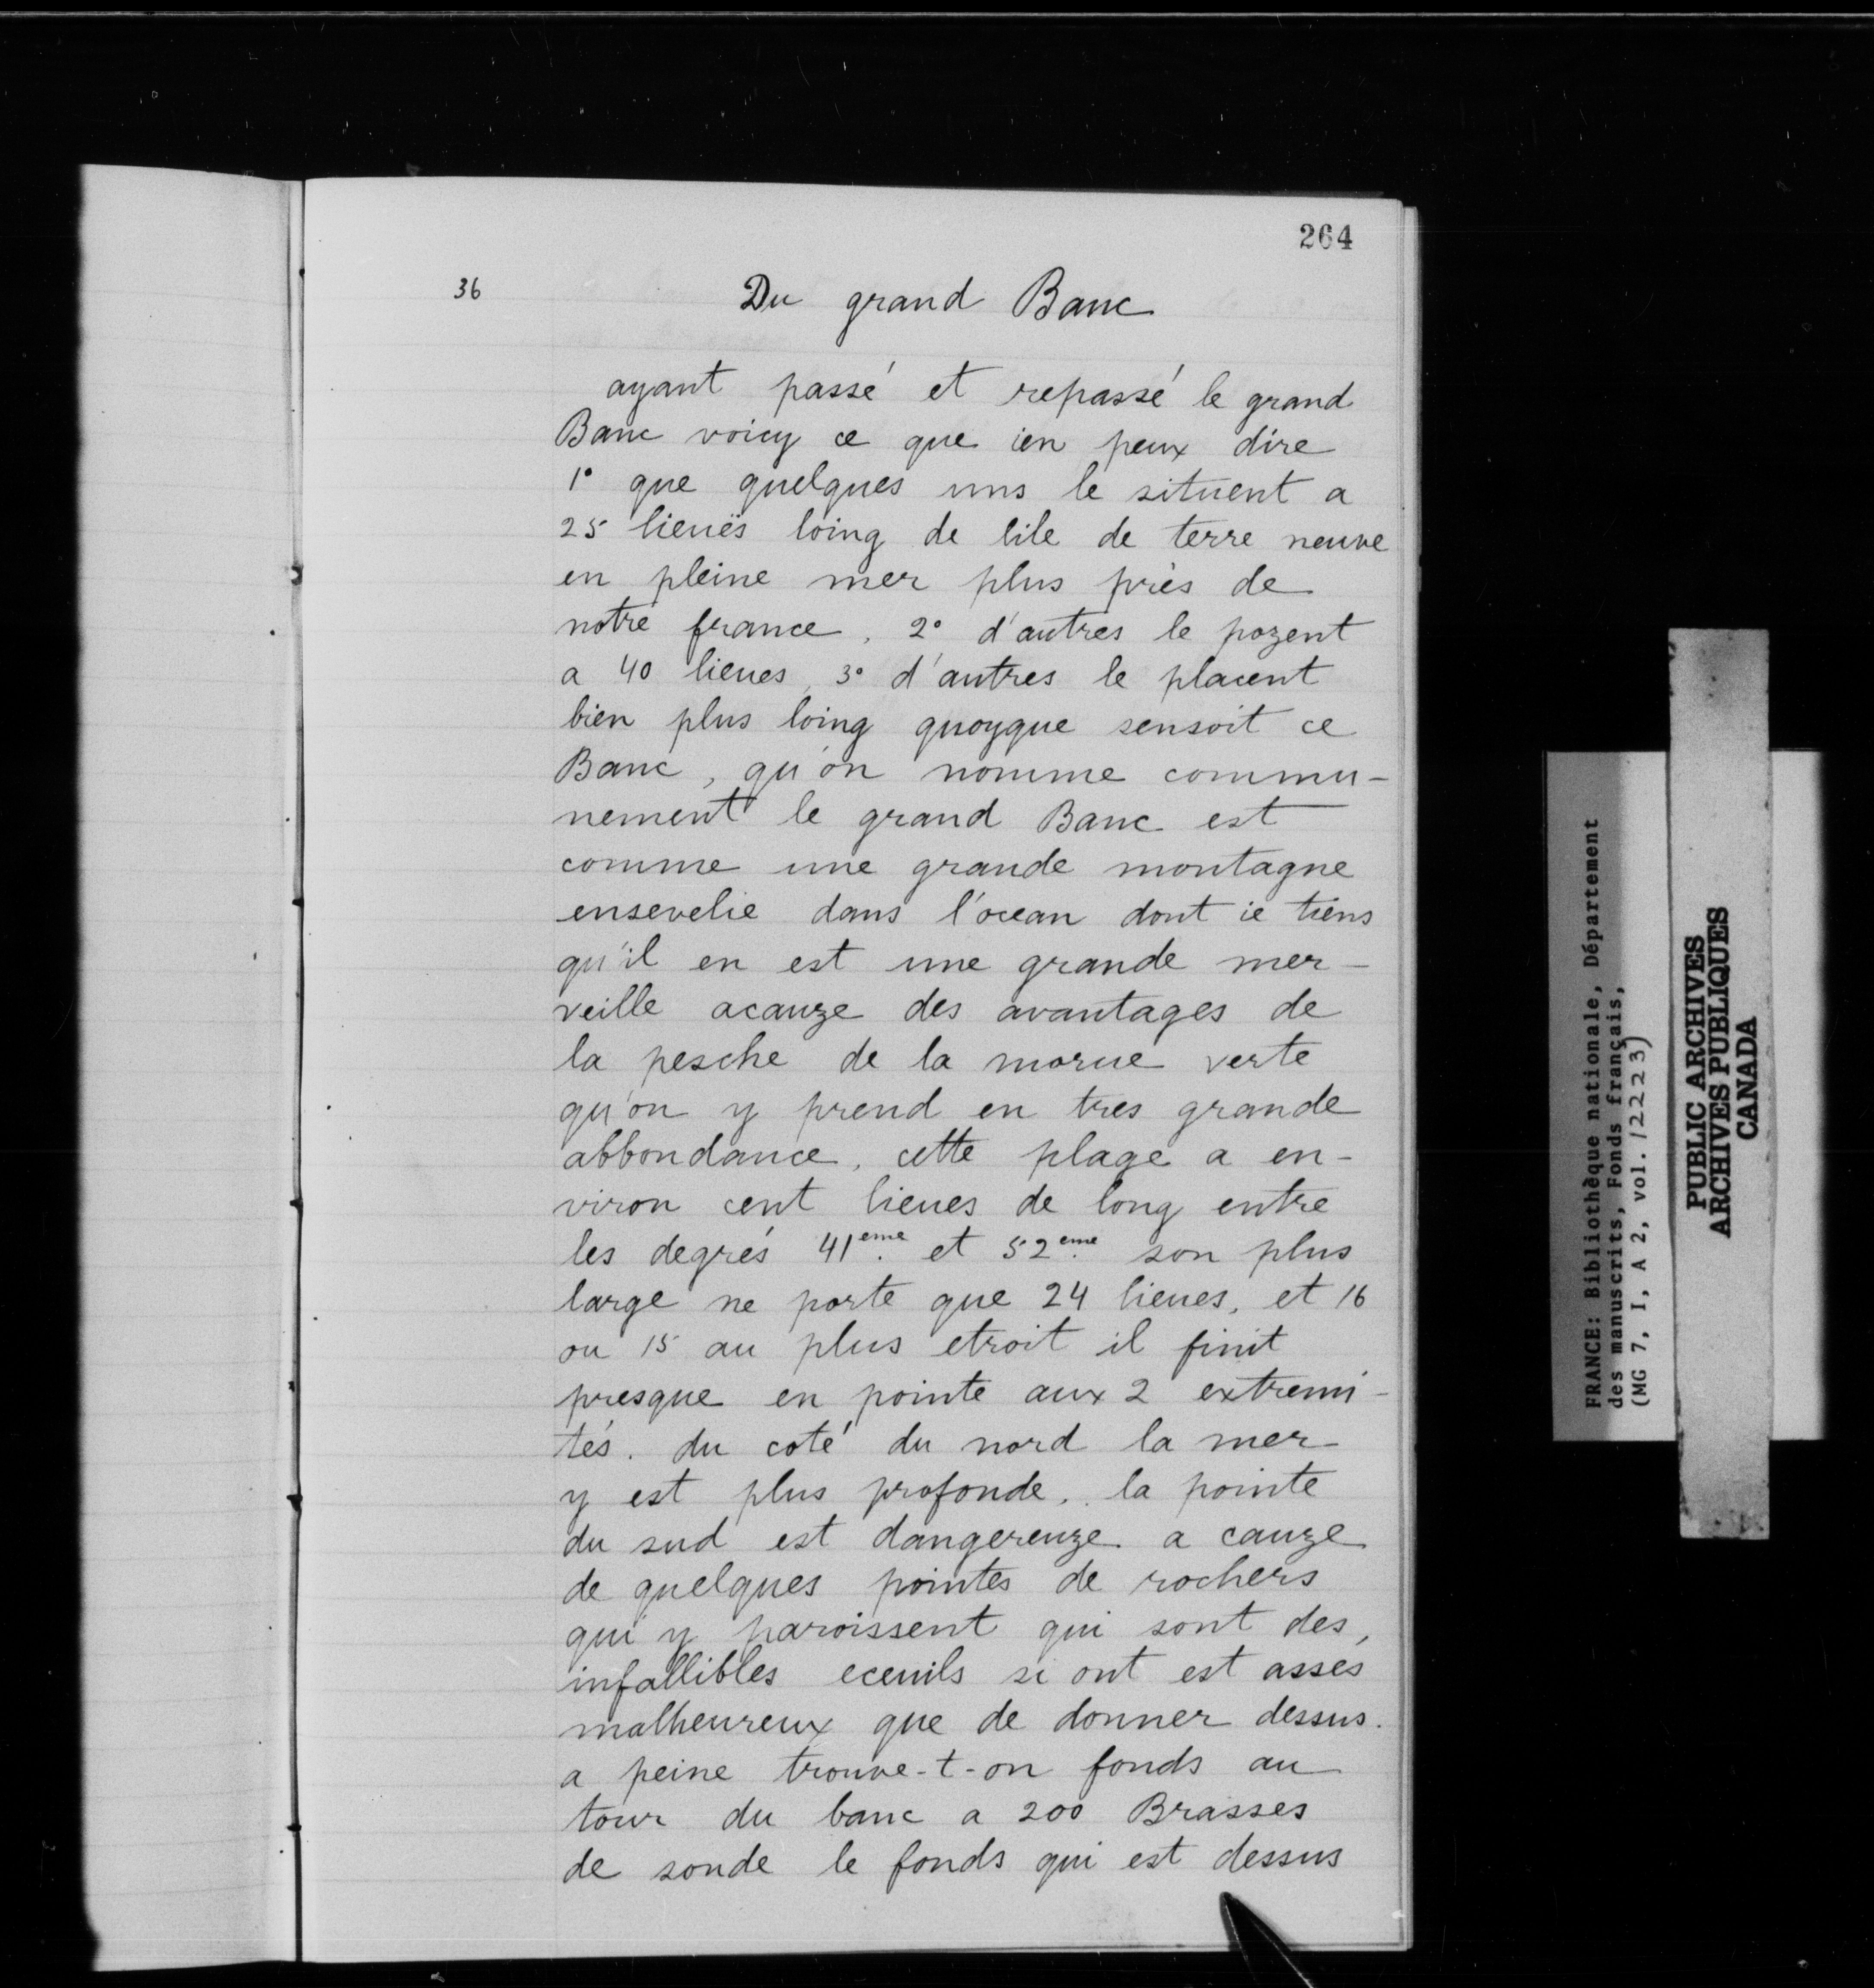 264
36
Du grand Banc
ayant passé et repassé le grand
Banc voicy ce que ien peux dire
1° que quelques uns le situent a
25 lieuës loing de lile de terre neuve
en pleine mer plus près de
notre france. 2° d'autres le pozent
a 40 lieues, 3° d'autres le placent
bien plus loing quoyque sensoit ce
Banc, qu'on nomme commu-
nement le grand Banc est
comme une grande montagne
ensevelie dans l'ocean dont ie tiens
qu'il en est une grande mer-
veille acauze des avantages de
la pesche de la morue verte
qu'on y prend en tres grande
abbondance. cette plage a en-
viron cent lieues de long entre
les degrés 41eme. et 52eme. son plus
large ne porte que 24 lieues, et 16
ou 15 au plus etroit il finit
presque en pointe aux 2 extremi-
tés. du coté du nord la mer
y est plus profonde. la pointe
du sud est dangereuze a cauze
de quelques pointes de rochers
qui y paroissent qui sont des,
infallibles eceuils si ont est asses
malheureux que de donner dessus.
a peine trouve-t-on fonds au
tour du banc a 200 Brasses
de sonde le fonds qui est dessus
FRANCE: Bibliothèque nationale, Département
des manuscrits, Fonds français,
(MG 7, I, A 2, vol. 12223)
PUBLIC ARCHIVES
ARCHIVES PUBLIQUES
CANADA